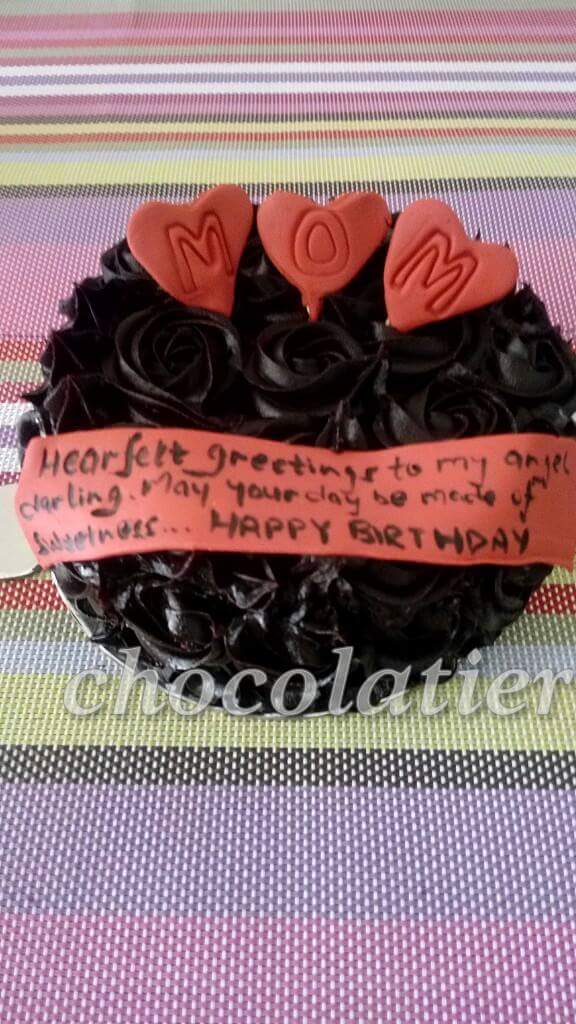 MOM
Hearfelt greetings to my angel
darling. May your day be made of
Sweetness... HAPPY BIRTHDAY
chocolatier